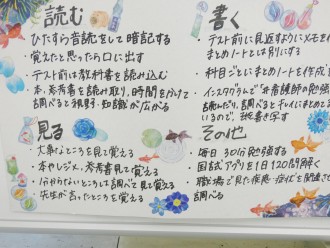 読む
ひたすら音読をして暗記する
・覚えたと思ったら口に出す
・テスト前は教科書を読み込む
・本、参考書を読み取り、時間をかけて
調べると視野・知識が広がる
見る
・大事なところを見て覚える
・本やレジメ、参考書見て覚える
・分からないところは調べて見て覚える
・先生が言ったところを覚える
書く
・テスト前に見返すようにメモを
まとめノートとは別にする
・科目ごとにまとめノートを作成
・インスタグラムで「#看護師の勉強
調べるとキレイにまとめ
いるので、我も書き写す
その他
・毎日30分勉強する
・国試アプリを1日120問解く
・職場で見た疾患・症状を関連させ
調べる